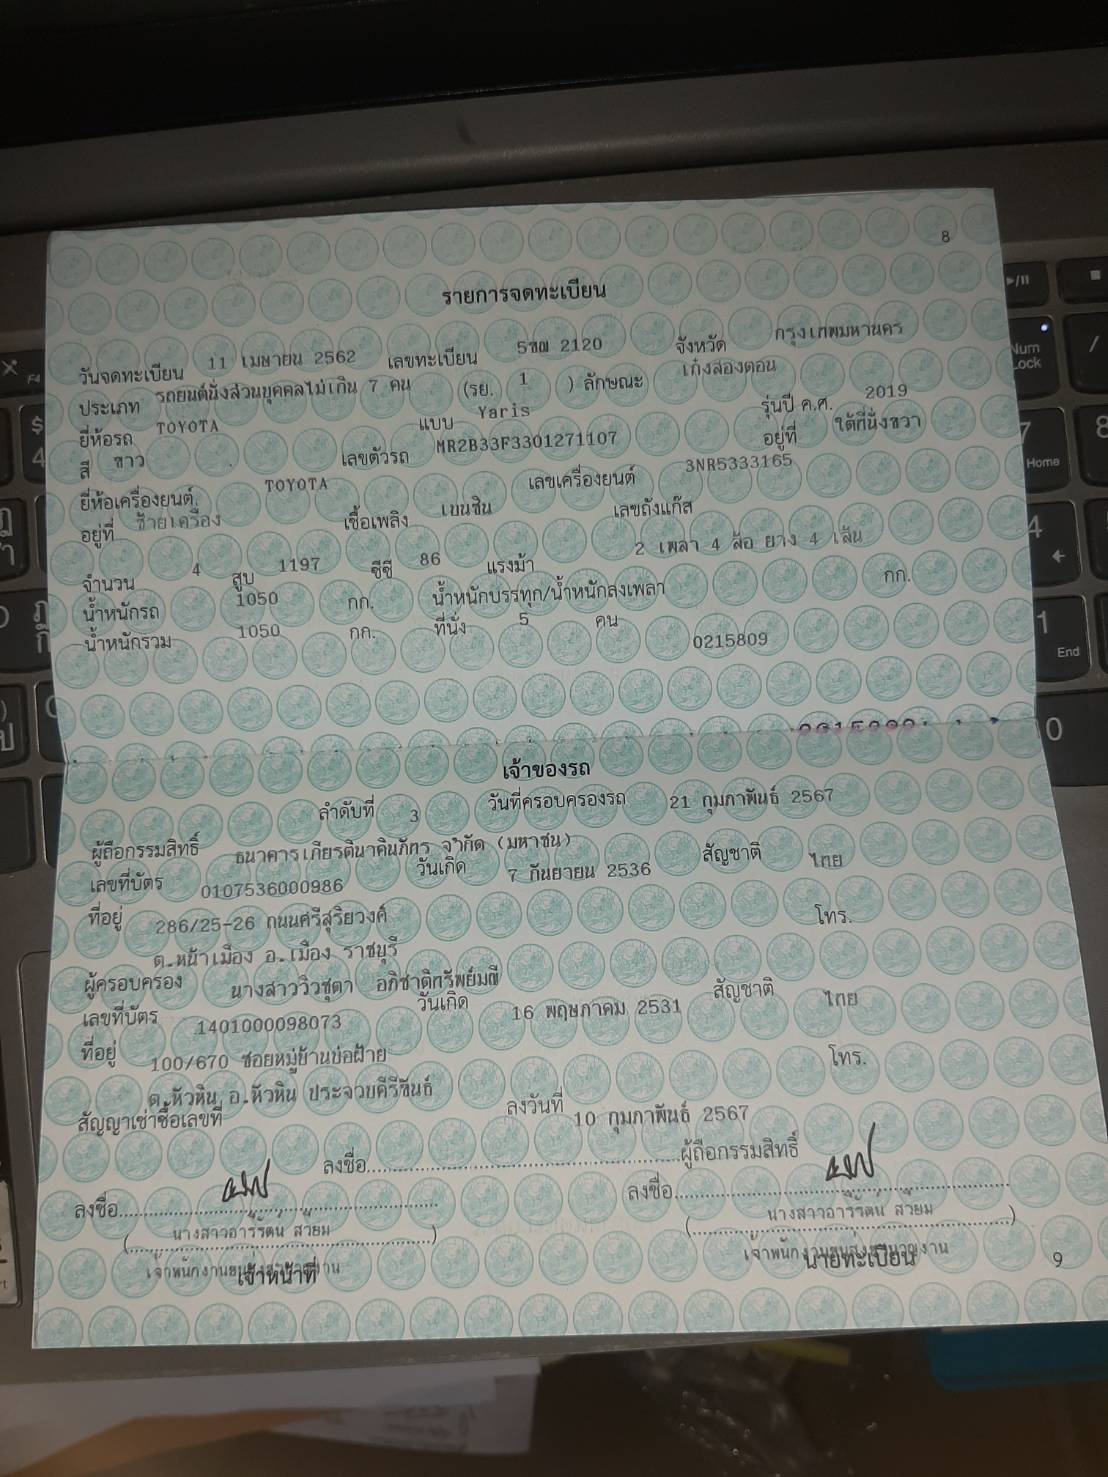 8
รายการจดทะเบียน
วันจดทะเบียน 11 เมษายน 2562 เลขทะเบียน 5ขฌ 2120 จังหวัด กรุงเทพมหานคร
ประเภท รถยนต์นั่งส่วนบุคคลไม่เกิน 7 คน (รย. 1 ) ลักษณะ เก๋งสองตอน
ยี่ห้อรถ TOYOTA แบบ Yaris รุ่นปี ค.ศ. 2019
สี ขาว เลขตัวรถ MR2B33F3301271107 อยู่ที่ ใต้ที่นั่งขวา
ยี่ห้อเครื่องยนต์ TOYOTA เลขเครื่องยนต์ 3NR5333165
อยู่ที่ ซ้ายเครื่อง เชื้อเพลิง เบนซิน เลขถังแก๊ส
จำนวน 4 สูบ 1197 ซีซี 86 แรงม้า 2 เพลา 4 ล้อ ยาง 4 เส้น
น้ำหนักรถ 1050 กก. น้ำหนักบรรทุก/น้ำหนักลงเพลา กก.
น้ำหนักรวม 1050 กก. ที่นั่ง 5 คน
0215809
เจ้าของรถ
ลำดับที่ 3 วันที่ครอบครองรถ 21 กุมภาพันธ์ 2567
ผู้ถือกรรมสิทธิ์ ธนาคารเกียรตินาคินภัทร จำกัด (มหาชน)
เลขที่บัตร 0107536000986 วันเกิด 7 กันยายน 2536 สัญชาติ ไทย
ที่อยู่ 286/25-26 ถนนศรีสุริยวงศ์ โทร.
ต.หน้าเมือง อ.เมือง ราชบุรี
ผู้ครอบครอง นางสาววิวชุตา อภิชาติทรัพย์มณี
เลขที่บัตร 1401000098073 วันเกิด 16 พฤษภาคม 2531 สัญชาติ ไทย
ที่อยู่ 100/670 ซอยหมู่บ้านบ่อฝ้าย โทร.
ต.หัวหิน อ.หัวหิน ประจวบคีรีขันธ์
สัญญาเช่าซื้อเลขที่ ลงวันที่ 10 กุมภาพันธ์ 2567
ลงชื่อ ผู้ถือกรรมสิทธิ์
ลงชื่อ ลงชื่อ
(นางสาวอารีรัตน์ สวยม) (นางสาวอารีรัตน์ สวยม)
เจ้าหน้าที่ นายทะเบียน
9